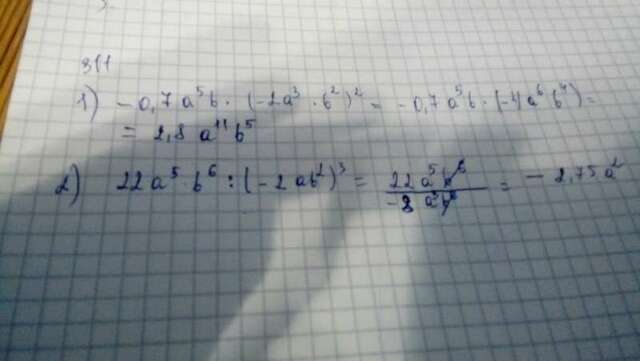 311
1) - 0,7 a⁵b · (-2a³ · b²)² = - 0,7 a⁵b · (-4a⁶b⁴) =
= 2,8 a¹¹b⁵
2) 22a⁵ · b⁶ : (- 2 ab²)³ = 22a⁵b⁶ / -8 a³b⁶ = - 2,75 a²